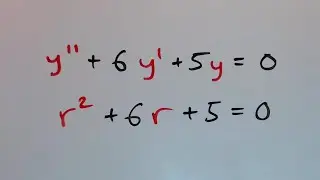 y'' + 6 y' + 5y = 0
r² + 6 r + 5 = 0